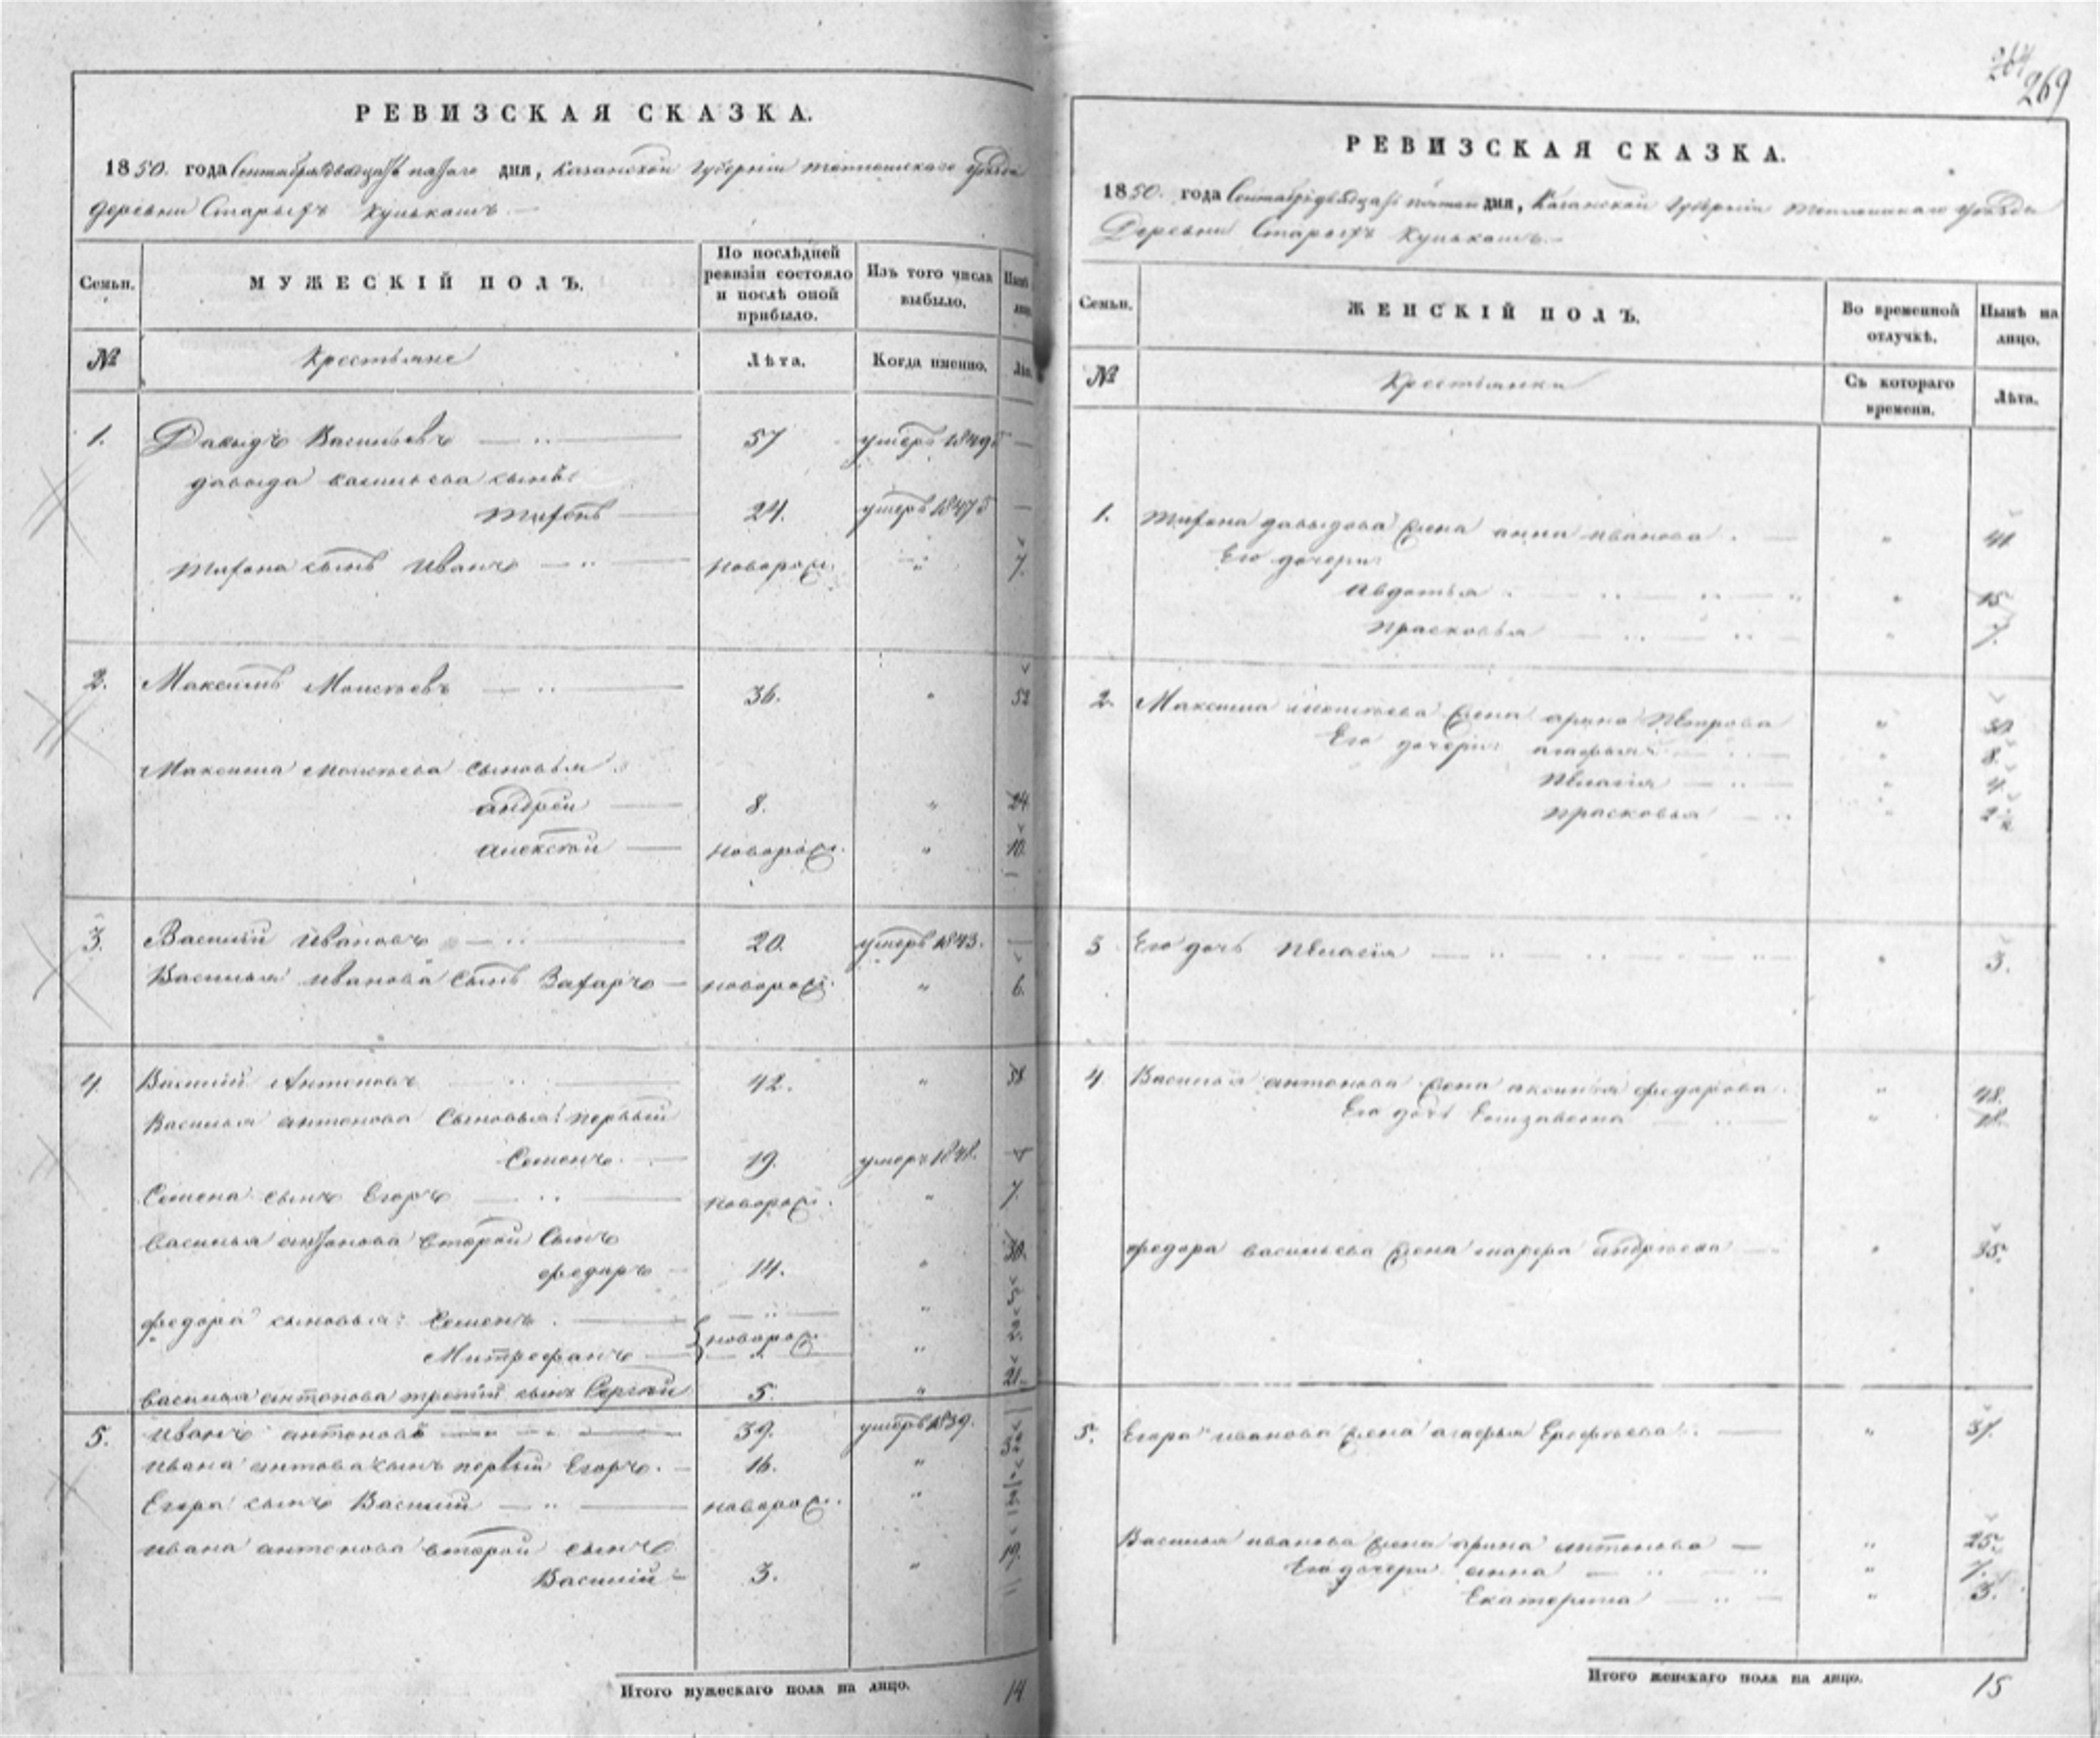 264
269
РЕВИЗСКАЯ СКАЗКА.
1850. года Сентября двадцать пятаго дня, Казанской Губернии Тетюшскаго уѣзда
деревни Старыхъ
Семьи.
МУЖЕСКІЙ ПОЛЪ.
По послѣдней ревизіи состояло и послѣ оной прибыло.
Изъ того числа выбыло.
№
Крестьяне
Лѣта.
Когда именно.
1. Давыдъ Васильевъ 57 умеръ 1849
давыда васильева сынъ
Тифонъ 24. умеръ 1847
Тифона сынъ Иванъ новорож. " 7.
2. Максимъ Моисѣевъ 36. " 52
Максима Моисѣева сыновья
андрей 8. " 24
алексѣй новорож. " 10.
3. Василий Ивановъ 20. умеръ 1843.
Василья Иванова сынъ Захаръ новорож. " 6.
4. Василий Антоновъ 42. " 58
Василья антонова Сыновья: первый
Семенъ. 19. умеръ 1848.
Семена сынъ Егоръ новорож. " 7.
васильа антонова второй Сынъ
федоръ 14. " 30.
федора сыновья: Семенъ. "
Митрофанъ новорож. "
василья антонова третий сынъ Сергѣй 5. " 21.
5. Иванъ антоновъ 39. умеръ 1839.
Ивана антова сынъ первый Егоръ. 16. "
Егора сынъ Василий новорож. "
ивана антонова второй сынъ
Василий 3. " 19.
Итого мужескаго пола на лицо. 14
РЕВИЗСКАЯ СКАЗКА.
1850. года Сентября двадцать пятаго дня, Казанской Губернии Тетюшскаго уѣзда
Деревни Старыхъ
Семьи.
ЖЕНСКІЙ ПОЛЪ.
Во временной отлучкѣ.
Нынѣ на лицо.
№
Крестьянки
Съ котораго времени.
Лѣта.
1. Тифона давыдова жена анна иванова. " 41
Его дочери:
Авдотья " 15
Прасковья " 7.
2. Максима моисѣева жена арина Петрова " 50
Его дочери: агафья " 8.
Пелагія " 4.
прасковья " 2
3 Его дочь Пелагія " 3.
4 Василья антонова жена аксинья федорова. " 48.
Его дочь Елизавета " 18.
федора васильева жена андрѣева " 35.
5. Егора иванова жена агафья Ерофѣева " 37.
Василья иванова жена арина антонова " 25.
Его дочери анна " 7.
Екатерина " 3.
Итого женскаго пола на лицо. 15